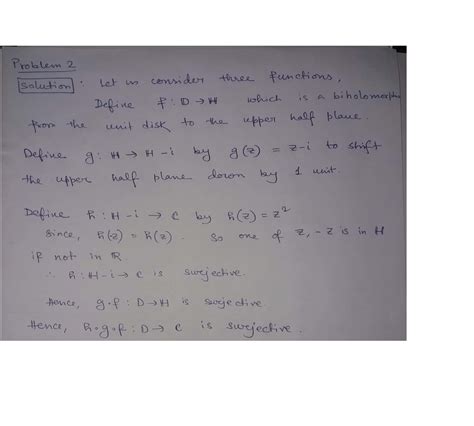 Problem 2
Solution : Let us consider three functions,
Define f : D → H which is a biholomorphi
from the unit disk to the upper half plane.
Define g : H → H - i by g(z) = z - i to shift
the upper half plane down by 1 unit.
Define h : H - i → C by h(z) = z²
since, h(z) = h(z) . So one of z, -z is in H
if not in R
∴ h : H - i → C is surjective.
Hence, g∘f : D → H is surjective
Hence, h∘g∘f : D → C is surjective.